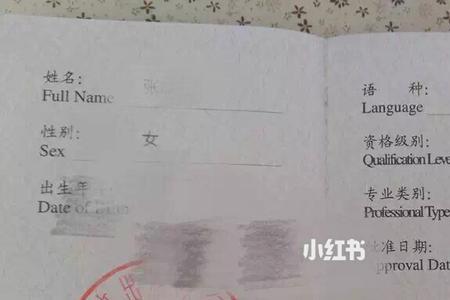 姓名:
Full Name 张
性别:
Sex 女
出生年
Date of Birth
语 种:
Language
资格级别:
Qualification Leve
专业类别:
Professional Type
准日期:
pproval Dat
小红书
出